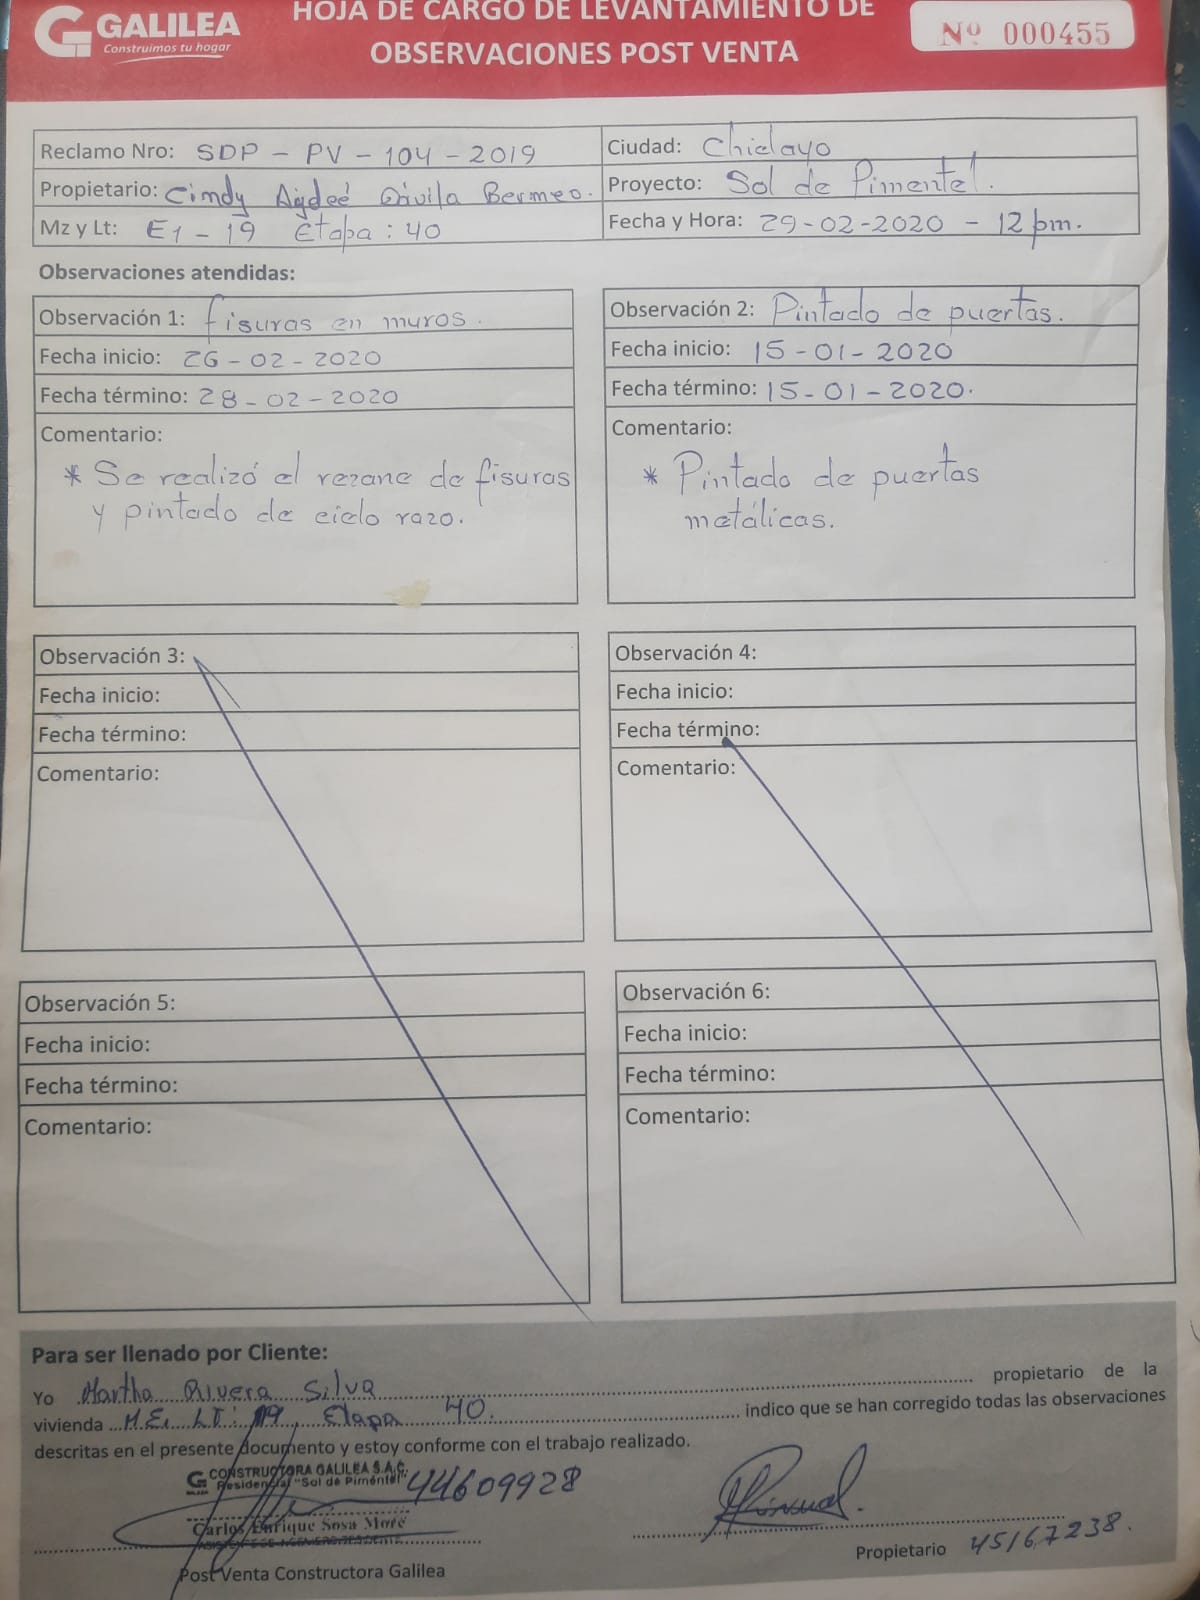 GALILEA
Construimos tu hogar
HOJA DE CARGO DE LEVANTAMIENTO DE
OBSERVACIONES POST VENTA
Nº 000455
Reclamo Nro: SDP - PV - 104 - 2019
Ciudad: Chiclayo
Propietario: Cindy Aydeé Dávila Bermeo.
Proyecto: Sol de Pimentel.
Mz y Lt: E1 - 19 Etapa: 40
Fecha y Hora: 29-02-2020 - 12 pm.
Observaciones atendidas:
Observación 1: fisuras en muros.
Fecha inicio: 26-02-2020
Fecha término: 28-02-2020
Comentario:
* Se realizó el rezane de fisuras
y pintado de cielo razo.
Observación 2: Pintado de puertas.
Fecha inicio: 15-01-2020
Fecha término: 15-01-2020.
Comentario:
* Pintado de puertas
metálicas.
Observación 3:
Fecha inicio:
Fecha término:
Comentario:
Observación 4:
Fecha inicio:
Fecha término:
Comentario:
Observación 5:
Fecha inicio:
Fecha término:
Comentario:
Observación 6:
Fecha inicio:
Fecha término:
Comentario:
Para ser llenado por Cliente:
Yo Martha Rivera Silva propietario de la
vivienda Lt: 19, Etapa 40. indico que se han corregido todas las observaciones
descritas en el presente documento y estoy conforme con el trabajo realizado.
CONSTRUCTORA GALILEA S.A.C.
Residencial "Sol de Pimentel"
44609928
Carlos Enrique Sosa Moré
Post Venta Constructora Galilea
Propietario 45167238.